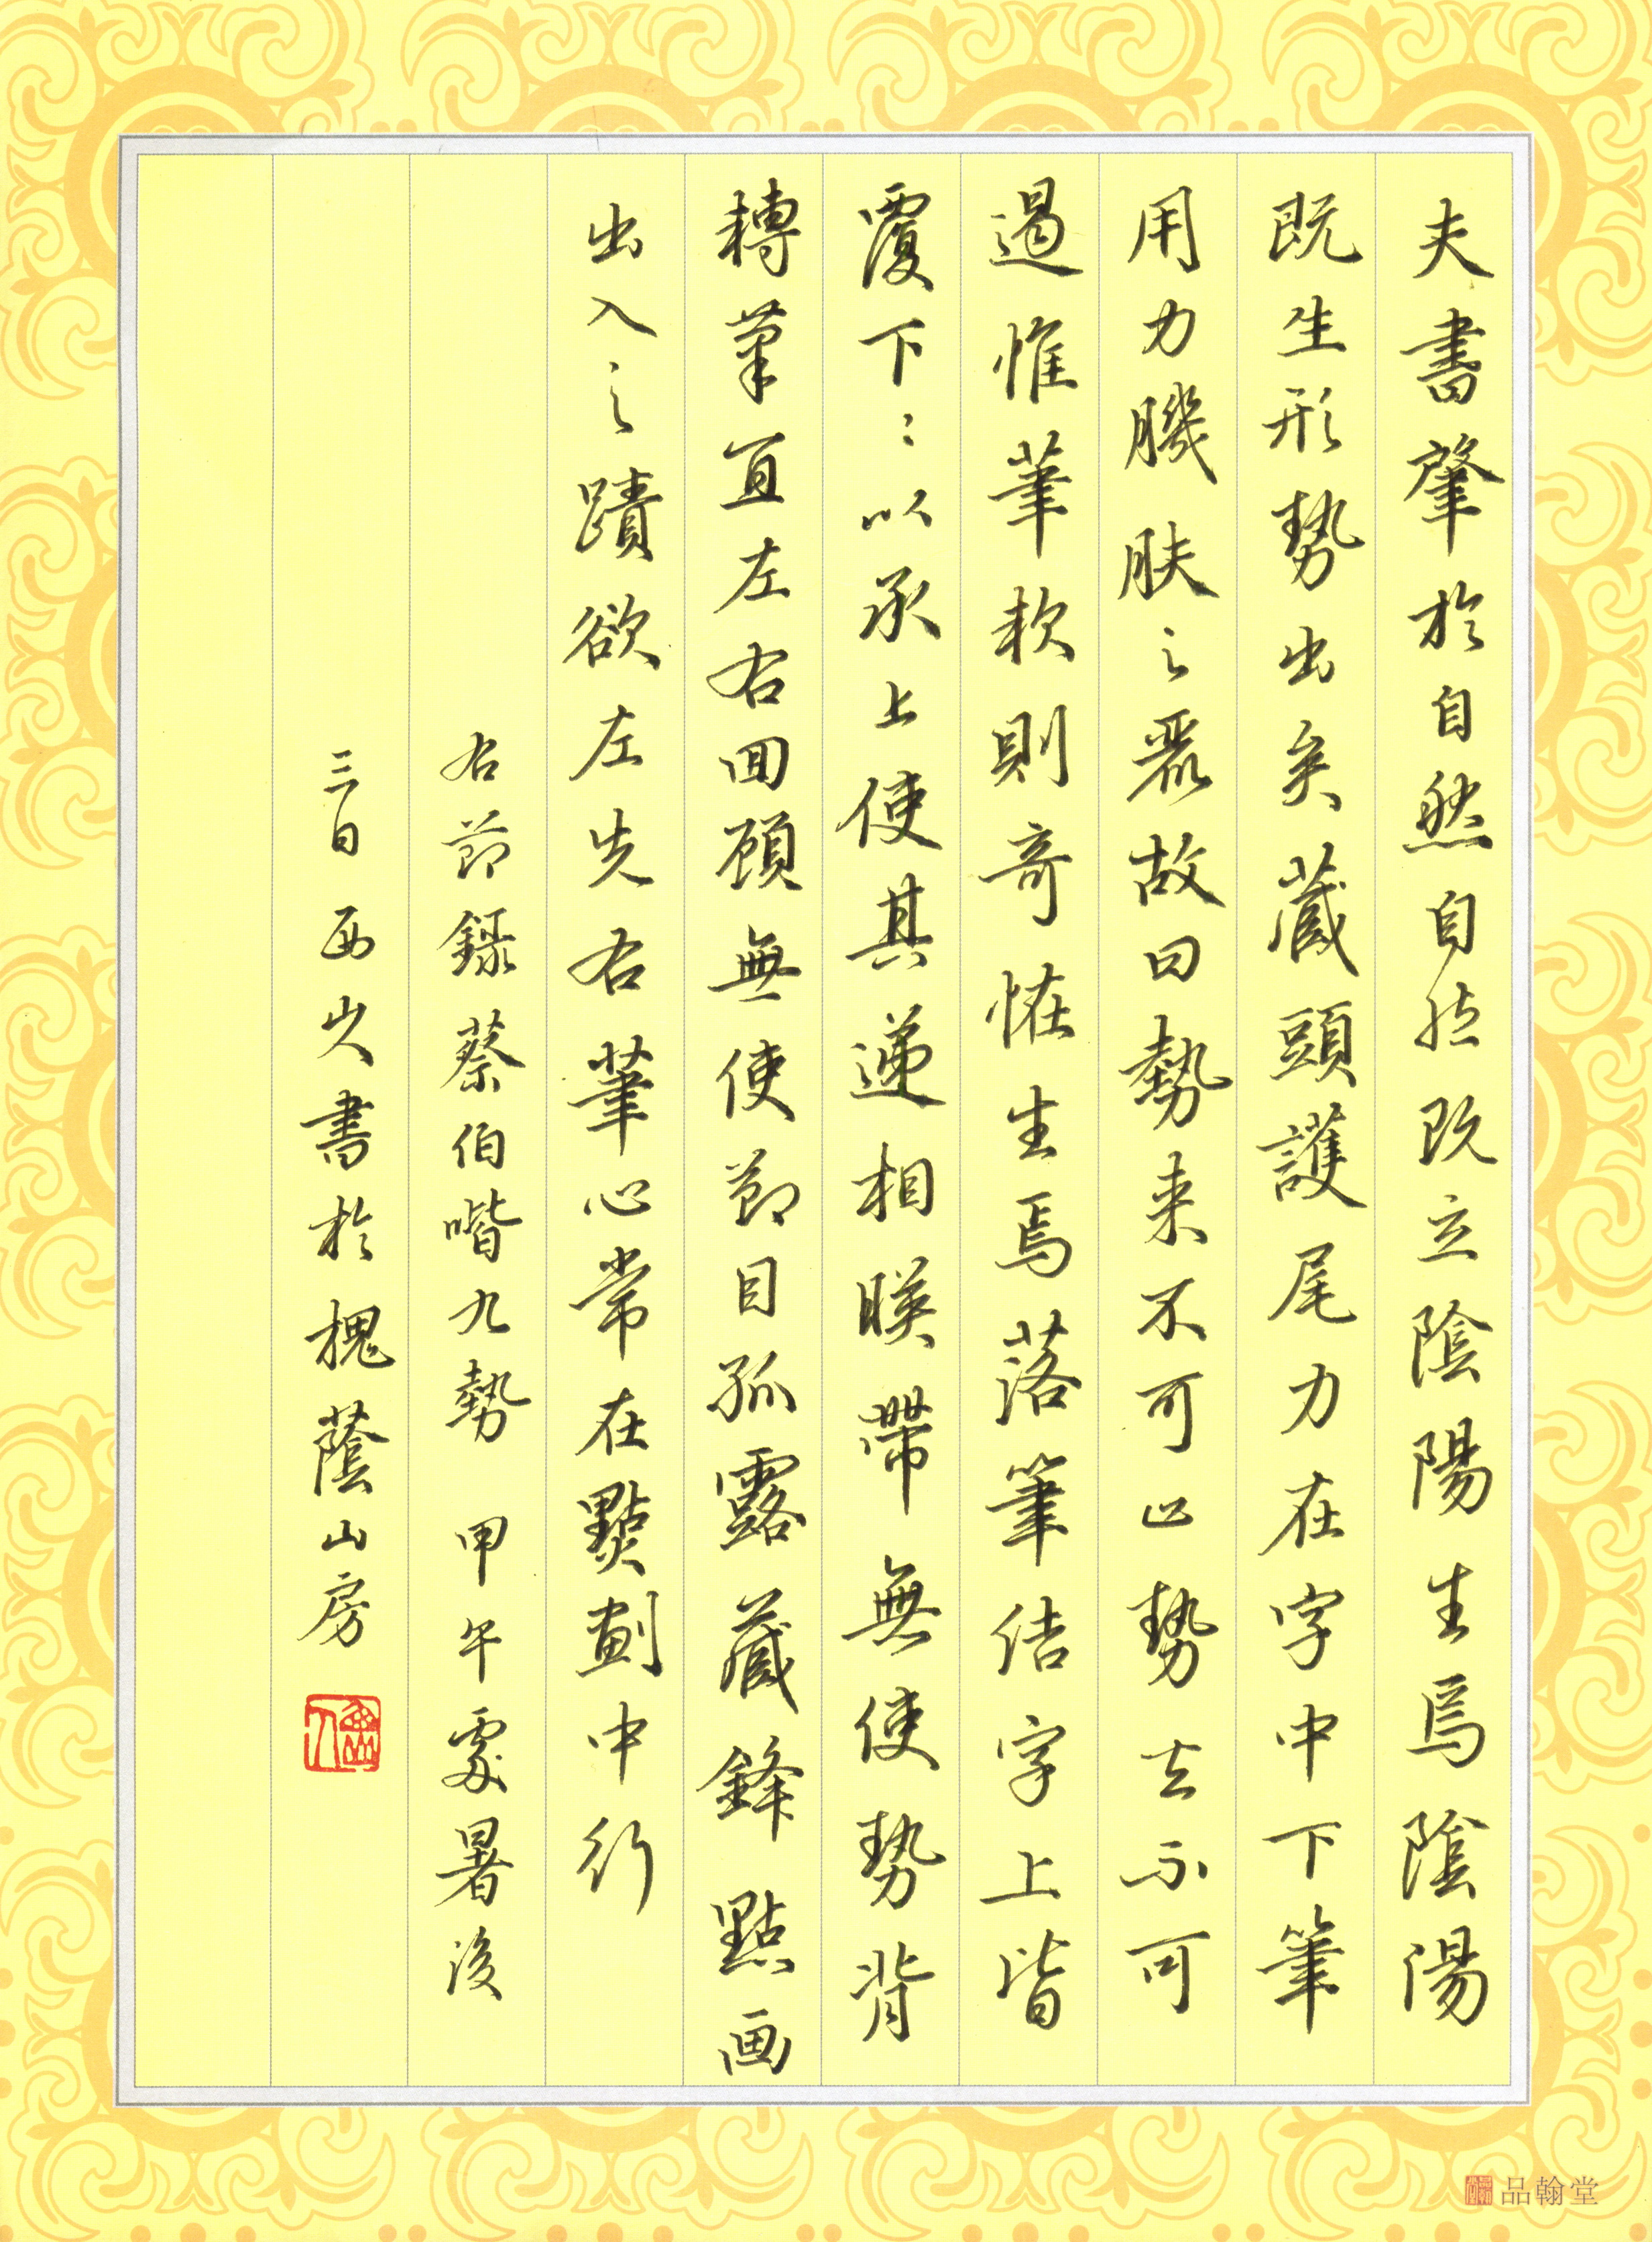 夫書肇於自然自然既立陰陽生焉陰陽
既生形勢出矣藏頭護尾力在字中下筆
用力肌膚之麗故曰勢来不可止勢去不可
遏惟筆軟則奇怪生焉落筆结字上皆
覆下下以承上使其遞相映帶無使勢背
轉筆宜左右回顧無使節目孤露藏鋒點画
出入之蹟欲左先右筆心常在點劃中行
右節錄蔡伯喈九勢 甲午處暑後
三日西山人書於槐蔭山房
品翰堂